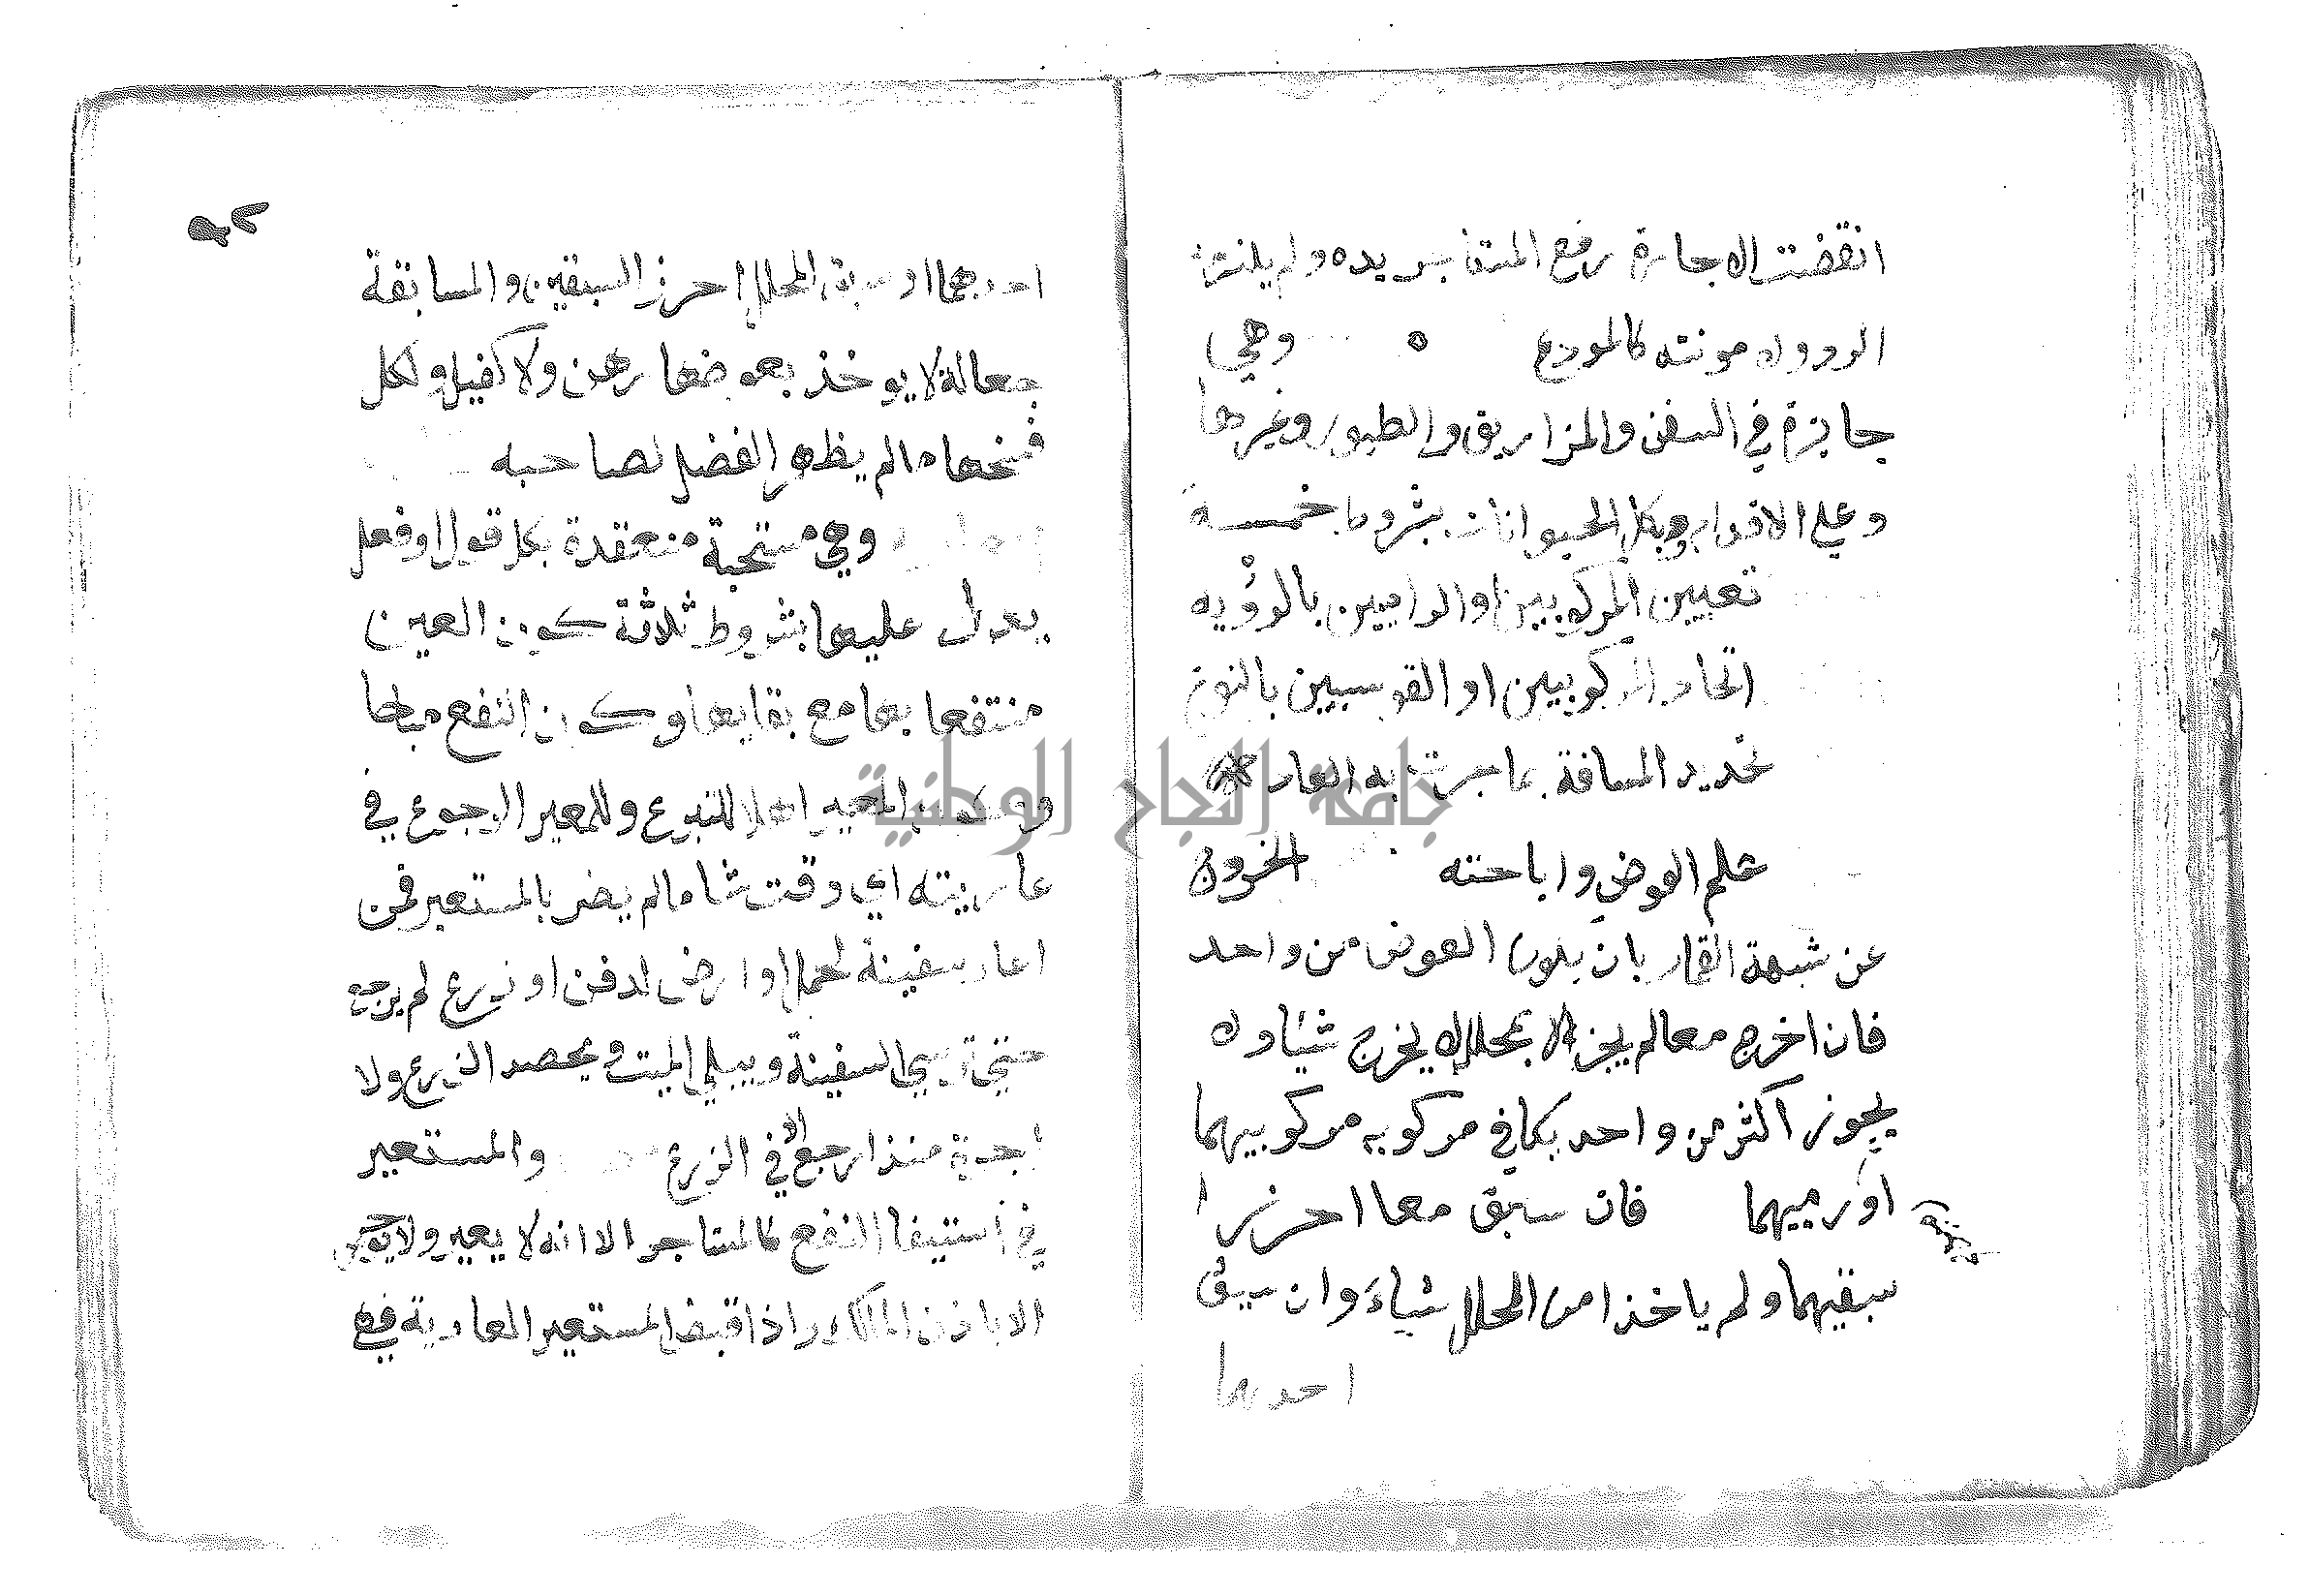 انقضت الاجارة رفع المستاجر يده ولم يلزمه
الرد ولا مونته كالمودع وهي
جايزة في السفن والمزاريق والطيور وغيرها
وعلي الاقدام وبكل الحيوانات بشروط خمسة
تعيين المركوبين او الراميين بالروية
اتحاد المركوبين او القوسين بالنوع
تحديد المسافة بما جرت به العادة
علم العوض واباحته الخروج
عن شبهة القمار بان يكون العوض من واحد
فان اخرج معا لم يجز الا بمحلل لا يخرج شيئا ولا
يجوز اكثر من واحد يكافي مركوبه مركوبيهما
او رميهما فان سبق معا احرزا
سبقيهما ولم ياخذا من المحلل شياء وان سبق
احدهما
٩٢
احدهما او سبق المحلل احرز السبقين والمسابقة
جعالة لا يوخذ بعوضها رهن ولا كفيل ولكل
فسخها ما لم يظهر الفضل لصاحبه
وهي مستحبة منعقدة بكل قول او فعل
يدل عليها بشروط ثلاثة كون العين
منتفعا بها مع بقايها وكون النفع مباحا
وكون المعير اهلا للتبرع وللمعير الرجوع في
عاريته اي وقت شا ما لم يضر بالمستعير فمن
اعار سفينة لحمل او ارض لدفن او زرع لم يرجع
حتي ترسي السفينة ويبلي الميت ويحصد الزرع ولا
اجرة منذ رجع الا في الزرع والمستعير
في استيفا النفع كالمستاجر الا انه لا يعير ولا يوجر
الا باذن المالك واذا قبض المستعير العارية فهي
جامعة النجاح الوطنية